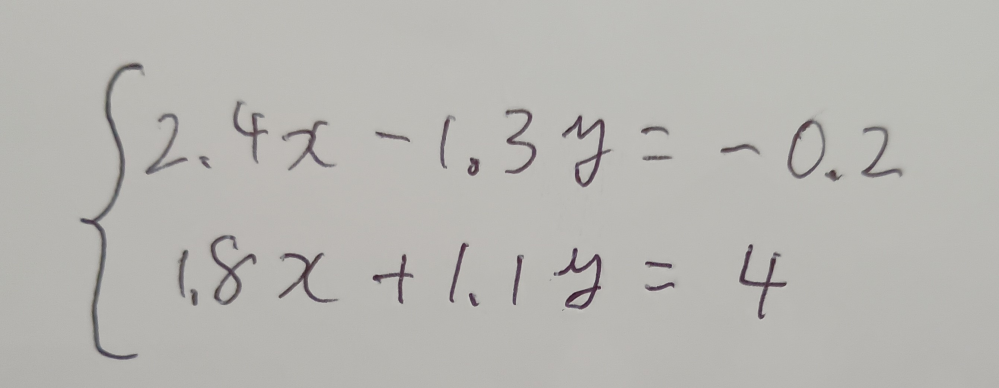 2.4x - 1.3y = -0.2
1.8x + 1.1y = 4